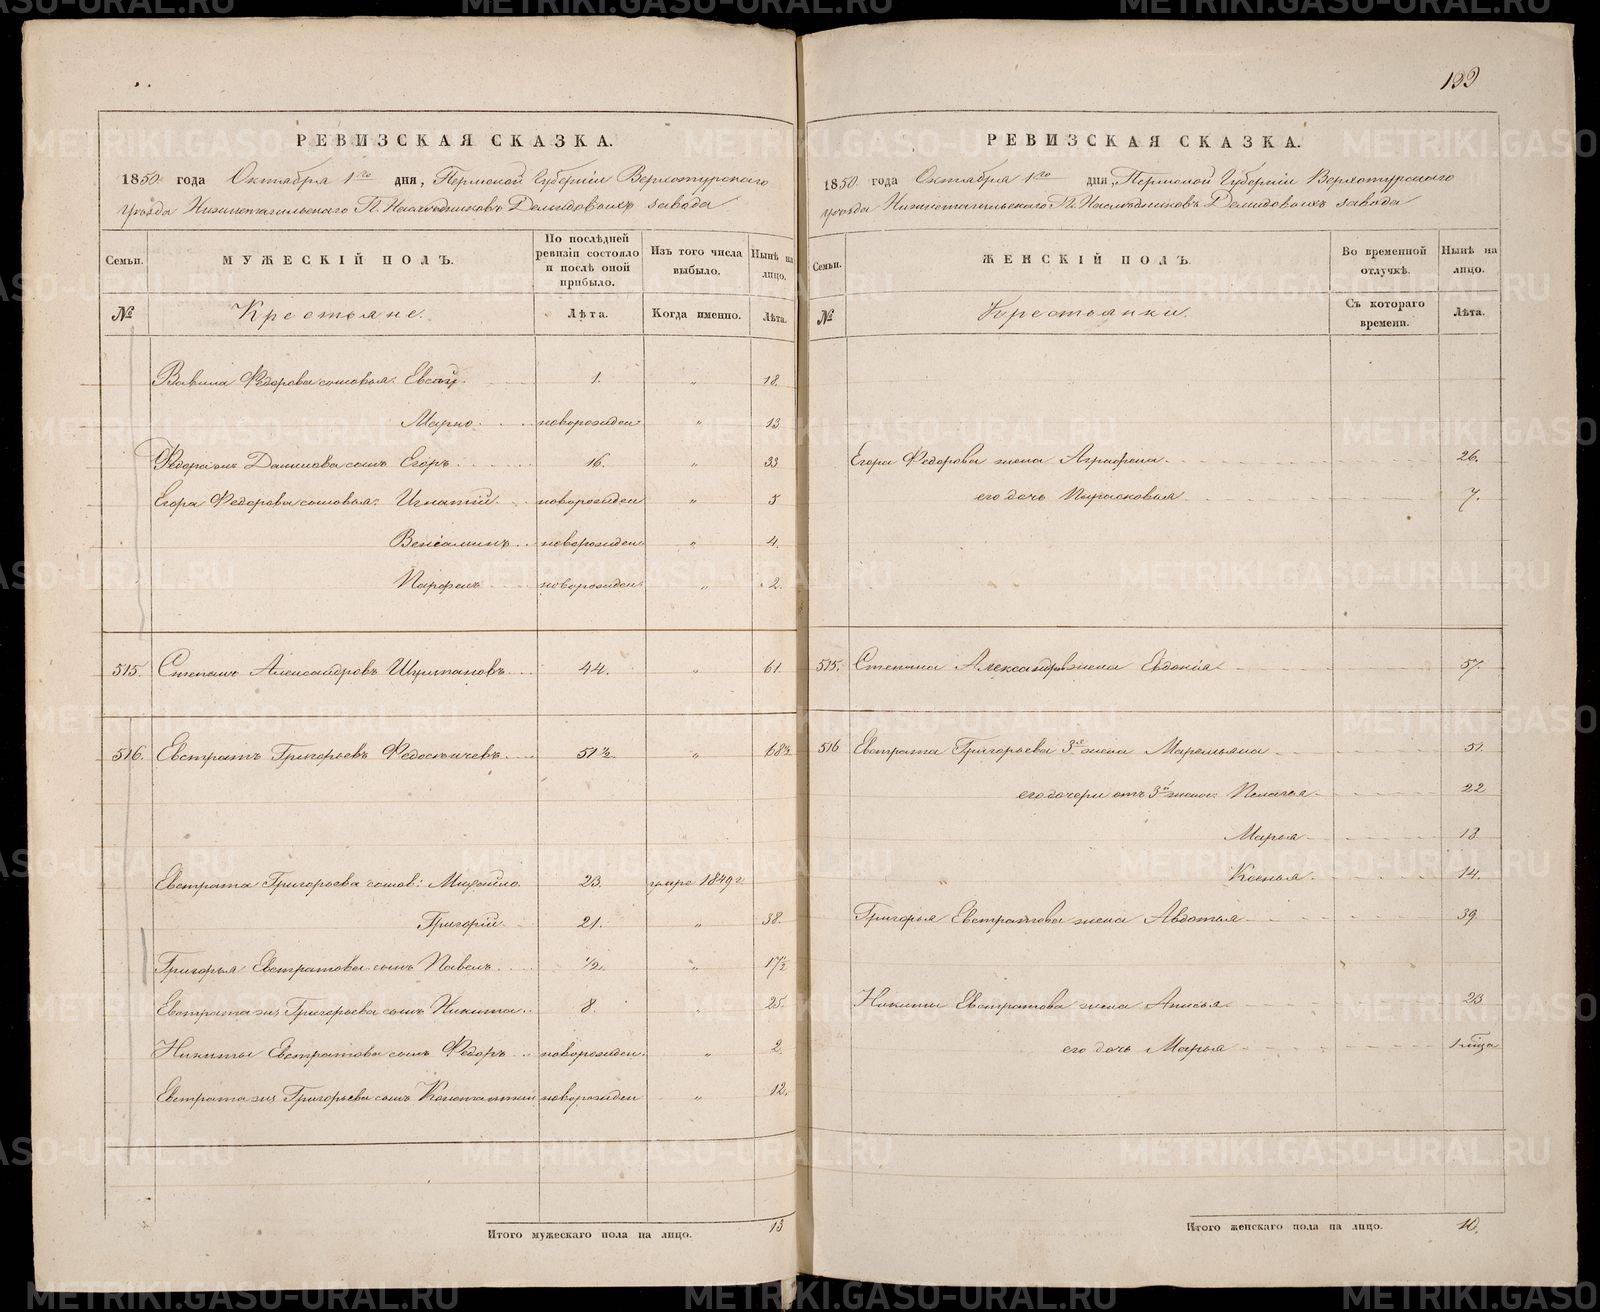 РЕВИЗСКАЯ СКАЗКА.
1850 года Октября 1го дня, Пермской Губерніи Верхотурскаго
уѣзда Нижнетагильскаго Г.г. Наслѣдниковъ Демидовыхъ завода
Семьи. МУЖЕСКІЙ ПОЛЪ. По послѣдней ревизіи состояло и послѣ оной прибыло. Изъ того числа выбыло. Нынѣ на лицо.
№ Крестьяне. Лѣта. Когда именно. Лѣта.
Вавила Федорова сыновья: 1. " 18
Марко новорожден " 13
Федора Данилова сынъ Егоръ 16. " 33
Егора Федорова сыновья: Игнатій новорожден " 5
Веніаминъ новорожден " 4.
Парфенъ новорожден " 2.
515. Степанъ Александровъ 44. " 61
516. Евстратъ Григорьевъ 51½ " 68½
Евстрата Григорьева сынов: Михайло 23. умре 1849 г
Григорій 21. " 38.
Григорья Евстратова сынъ Павелъ ½ " 17½
Евстрата Григорьева сынъ Никита 8. " 25.
Никиты Евстратова сынъ Федоръ новорожден " 2.
Евстрата Григорьева сынъ Константинъ новорожден " 12.
Итого мужескаго пола на лицо. 13
133
РЕВИЗСКАЯ СКАЗКА.
1850 года Октября 1го дня, Пермской Губерніи Верхотурскаго
уѣзда Нижнетагильскаго Г.г. Наслѣдниковъ Демидовыхъ завода
Семьи. ЖЕНСКІЙ ПОЛЪ. Во временной отлучкѣ. Нынѣ на лицо.
№ Крестьянки. Съ котораго времени. Лѣта.
Егора Федорова жена Аграфена 26.
его дочь Парасковья 7.
515. Степана Александрова жена Евдокія 57.
516 Евстрата Григорьева 3я жена Маремьяна 51.
его дочери отъ 3й жены: Пелагья 22
Марья 18
Ксенья 14.
Григорья Евстратова жена Авдотья 39
Никиты Евстратова жена Анисья 23
его дочь Марья
Итого женскаго пола на лицо. 10.
METRIKI.GASO-URAL.RU